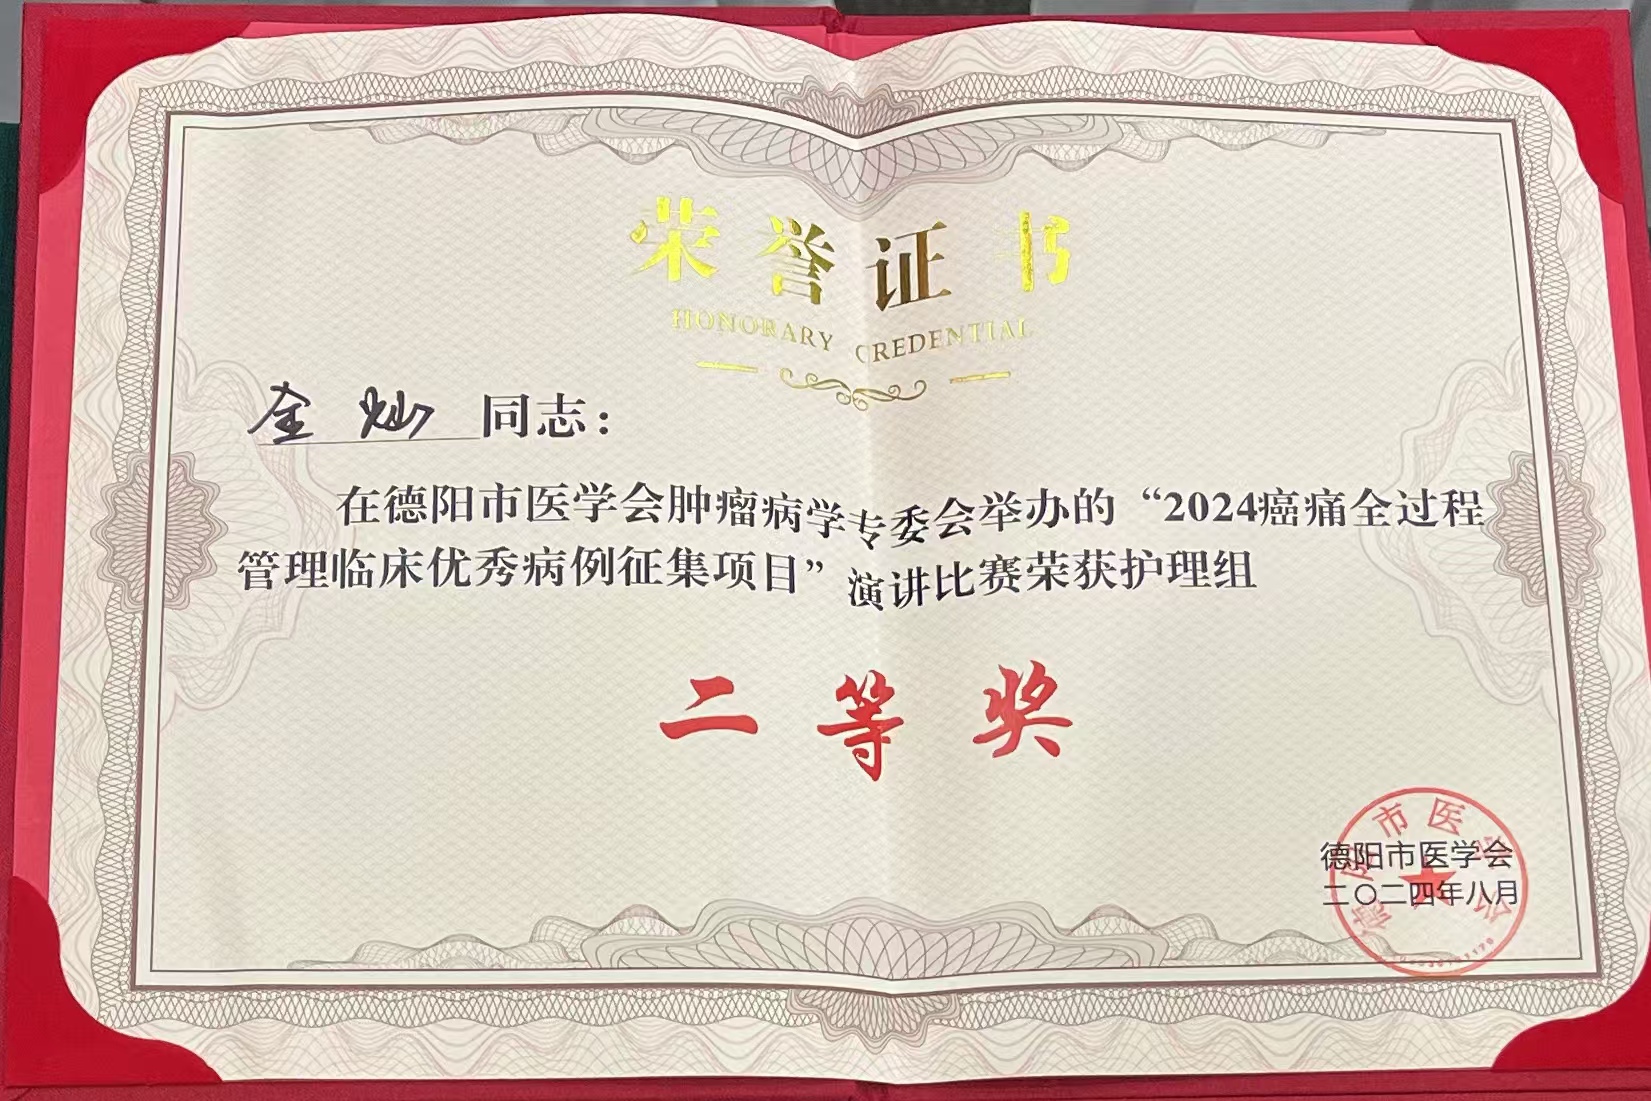 荣誉证书
HONORARY CREDENTIAL
金灿 同志：
在德阳市医学会肿瘤病学专委会举办的“2024癌痛全过程
管理临床优秀病例征集项目”演讲比赛荣获护理组
二等奖
德阳市医学会
二〇二四年八月
德阳市医学会